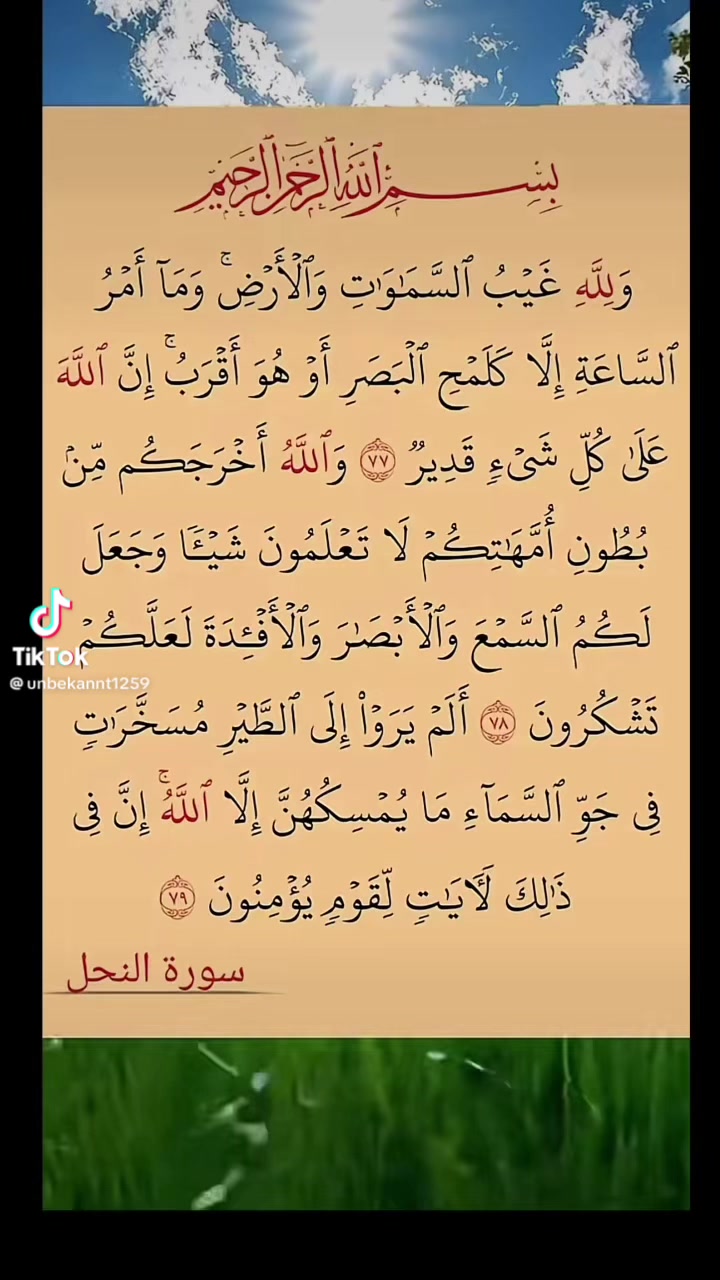 بِسْمِ ٱللَّهِ ٱلرَّحْمَٰنِ ٱلرَّحِيمِ
وَلِلَّهِ غَيْبُ ٱلسَّمَٰوَٰتِ وَٱلْأَرْضِ ۚ وَمَآ أَمْرُ
ٱلسَّاعَةِ إِلَّا كَلَمْحِ ٱلْبَصَرِ أَوْ هُوَ أَقْرَبُ ۚ إِنَّ ٱللَّهَ
عَلَىٰ كُلِّ شَىْءٍ قَدِيرٌ ٧٧ وَٱللَّهُ أَخْرَجَكُم مِّنۢ
بُطُونِ أُمَّهَٰتِكُمْ لَا تَعْلَمُونَ شَيْـًٔا وَجَعَلَ
لَكُمُ ٱلسَّمْعَ وَٱلْأَبْصَٰرَ وَٱلْأَفْـِٔدَةَ لَعَلَّكُمْ
تَشْكُرُونَ ٧٨ أَلَمْ يَرَوْا۟ إِلَى ٱلطَّيْرِ مُسَخَّرَٰتٍ
فِى جَوِّ ٱلسَّمَآءِ مَا يُمْسِكُهُنَّ إِلَّا ٱللَّهُ ۚ إِنَّ فِى
ذَٰلِكَ لَـَٔايَٰتٍ لِّقَوْمٍ يُؤْمِنُونَ ٧٩
سورة النحل
TikTok
@unbekannt1259